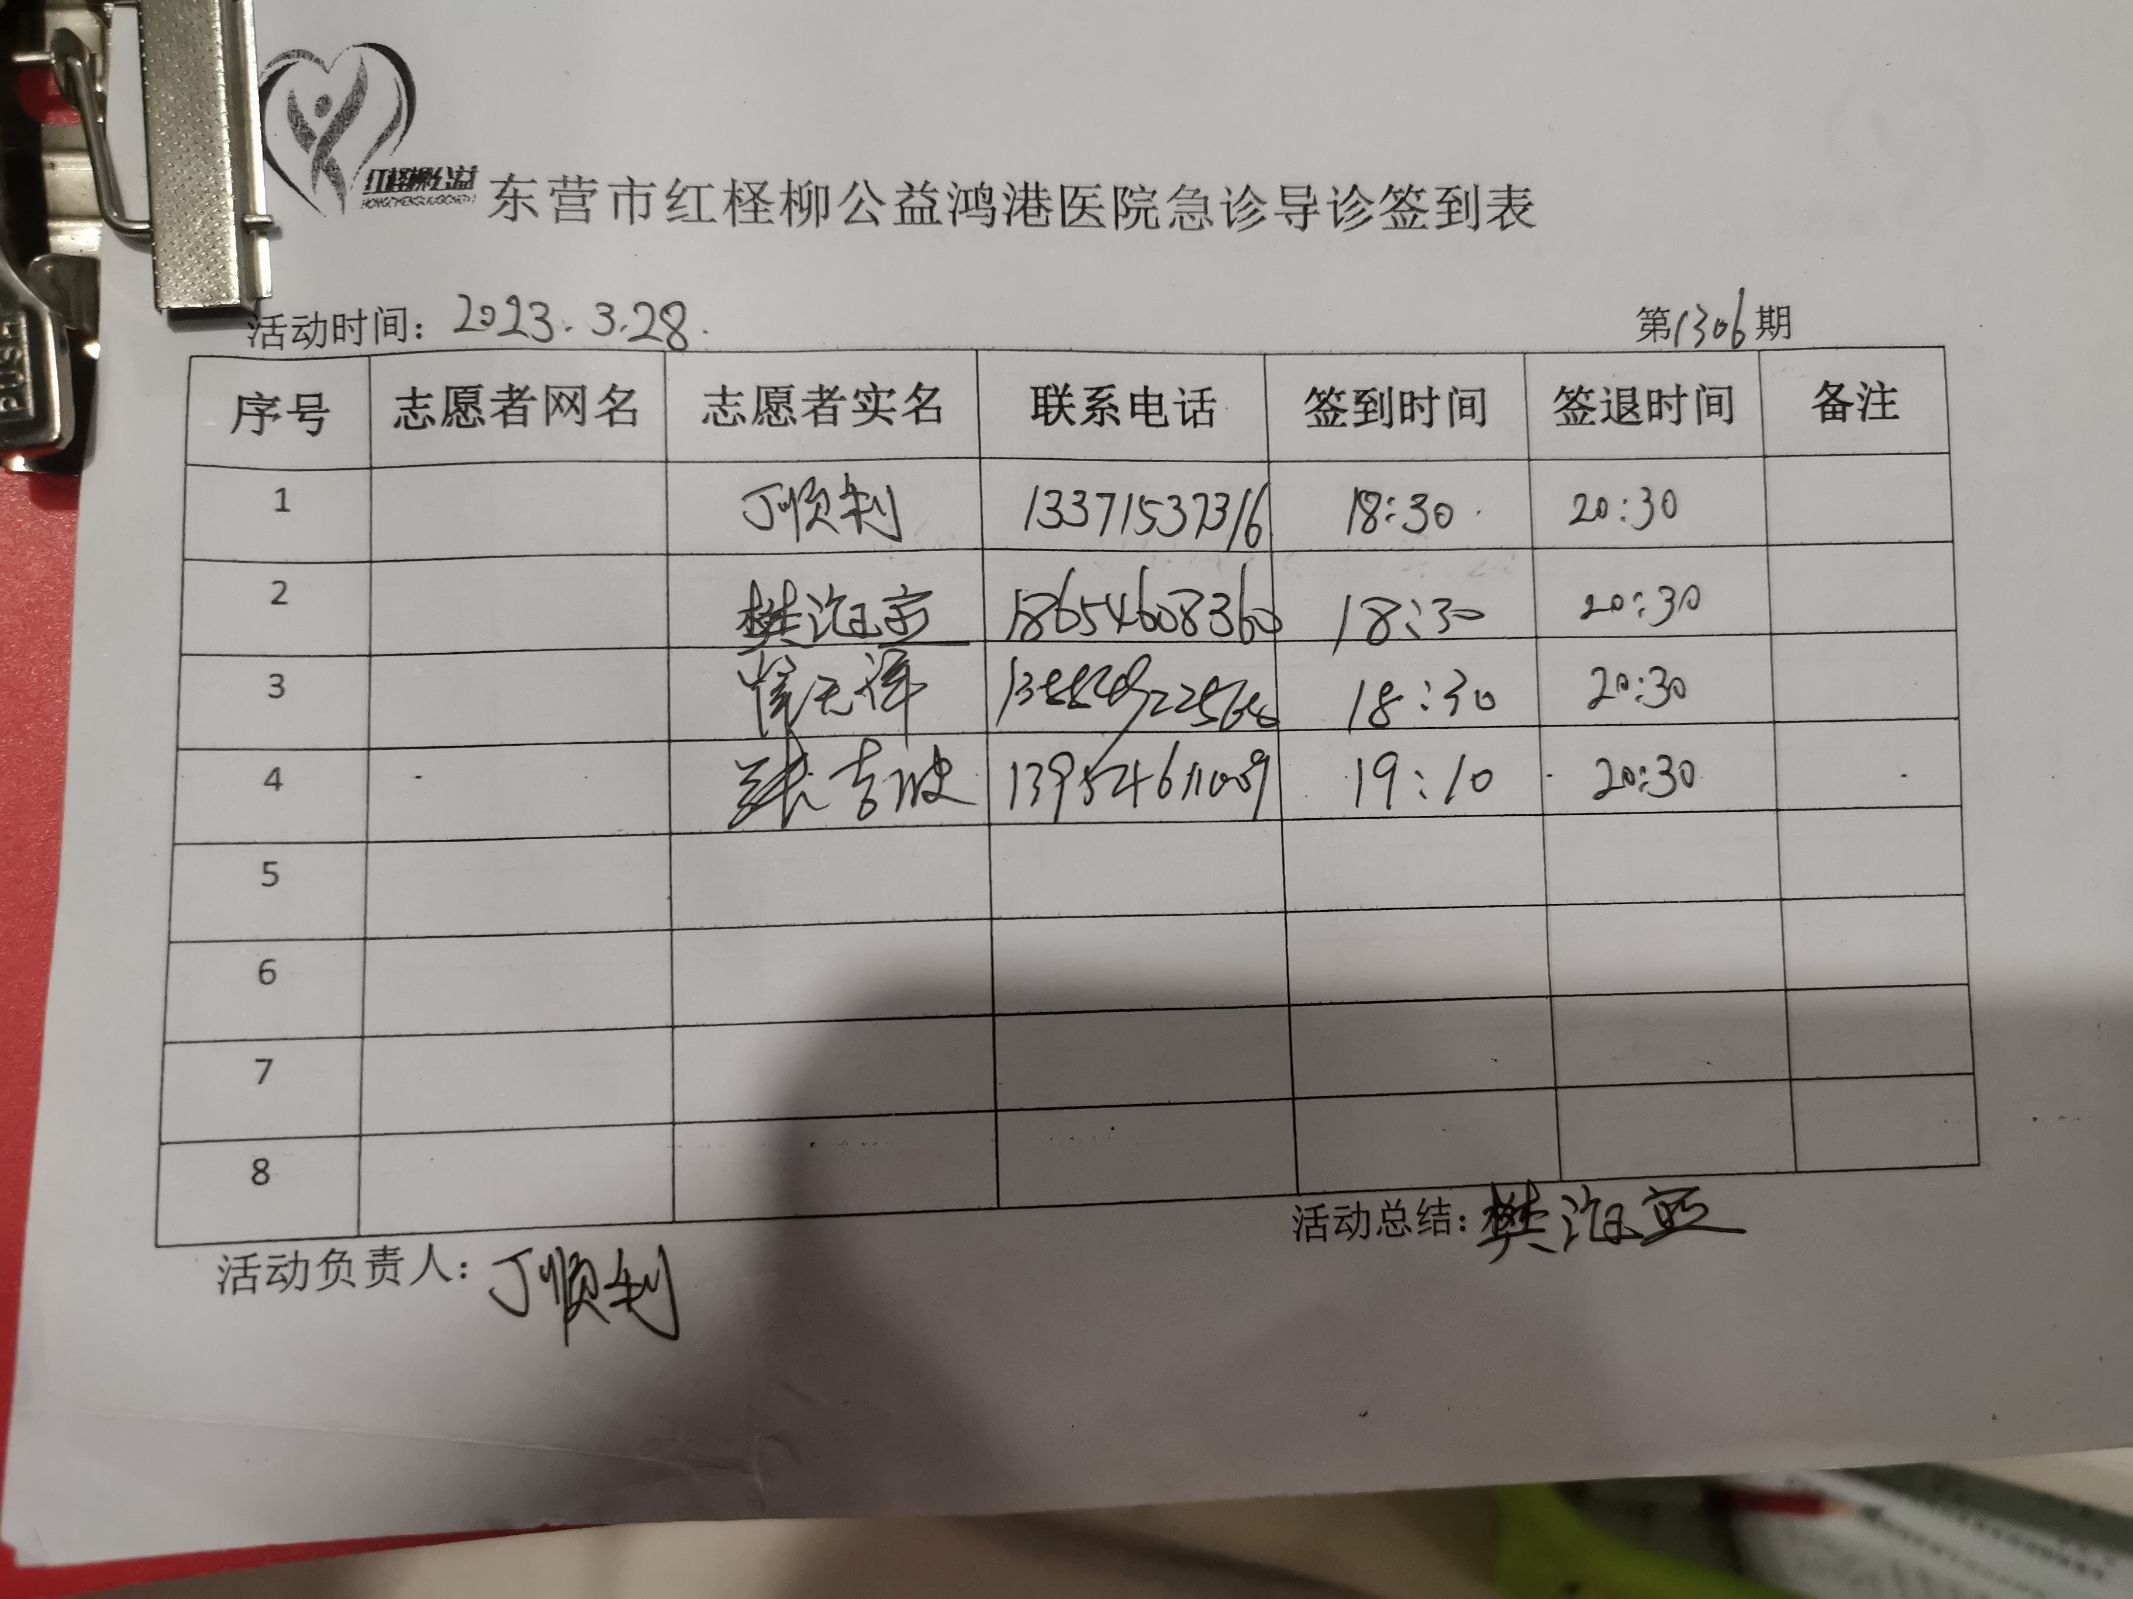 红柽柳公益
东营市红柽柳公益鸿港医院急诊导诊签到表
活动时间：2023.3.28.
第1306期
序号 志愿者网名 志愿者实名 联系电话 签到时间 签退时间 备注
1 丁顺利 13371537316 18:30 20:30
2 樊海亚 18654608360 18:30 20:30
3 18:30 20:30
4 张吉波 13954611009 19:10 20:30
5
6
7
8
活动总结：樊海亚
活动负责人：丁顺利
PUSH